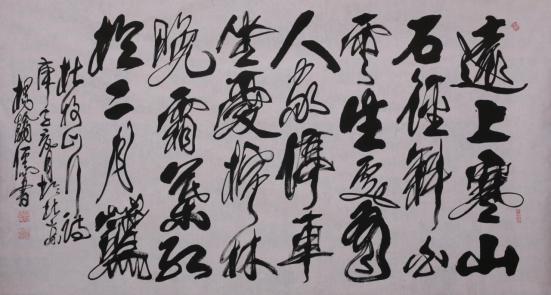 遠上寒山
石徑斜白
雲生處有
人家停車
坐愛楓林
晚霜葉紅
於二月花
杜牧山行詩
庚子夏月於北京
楊書